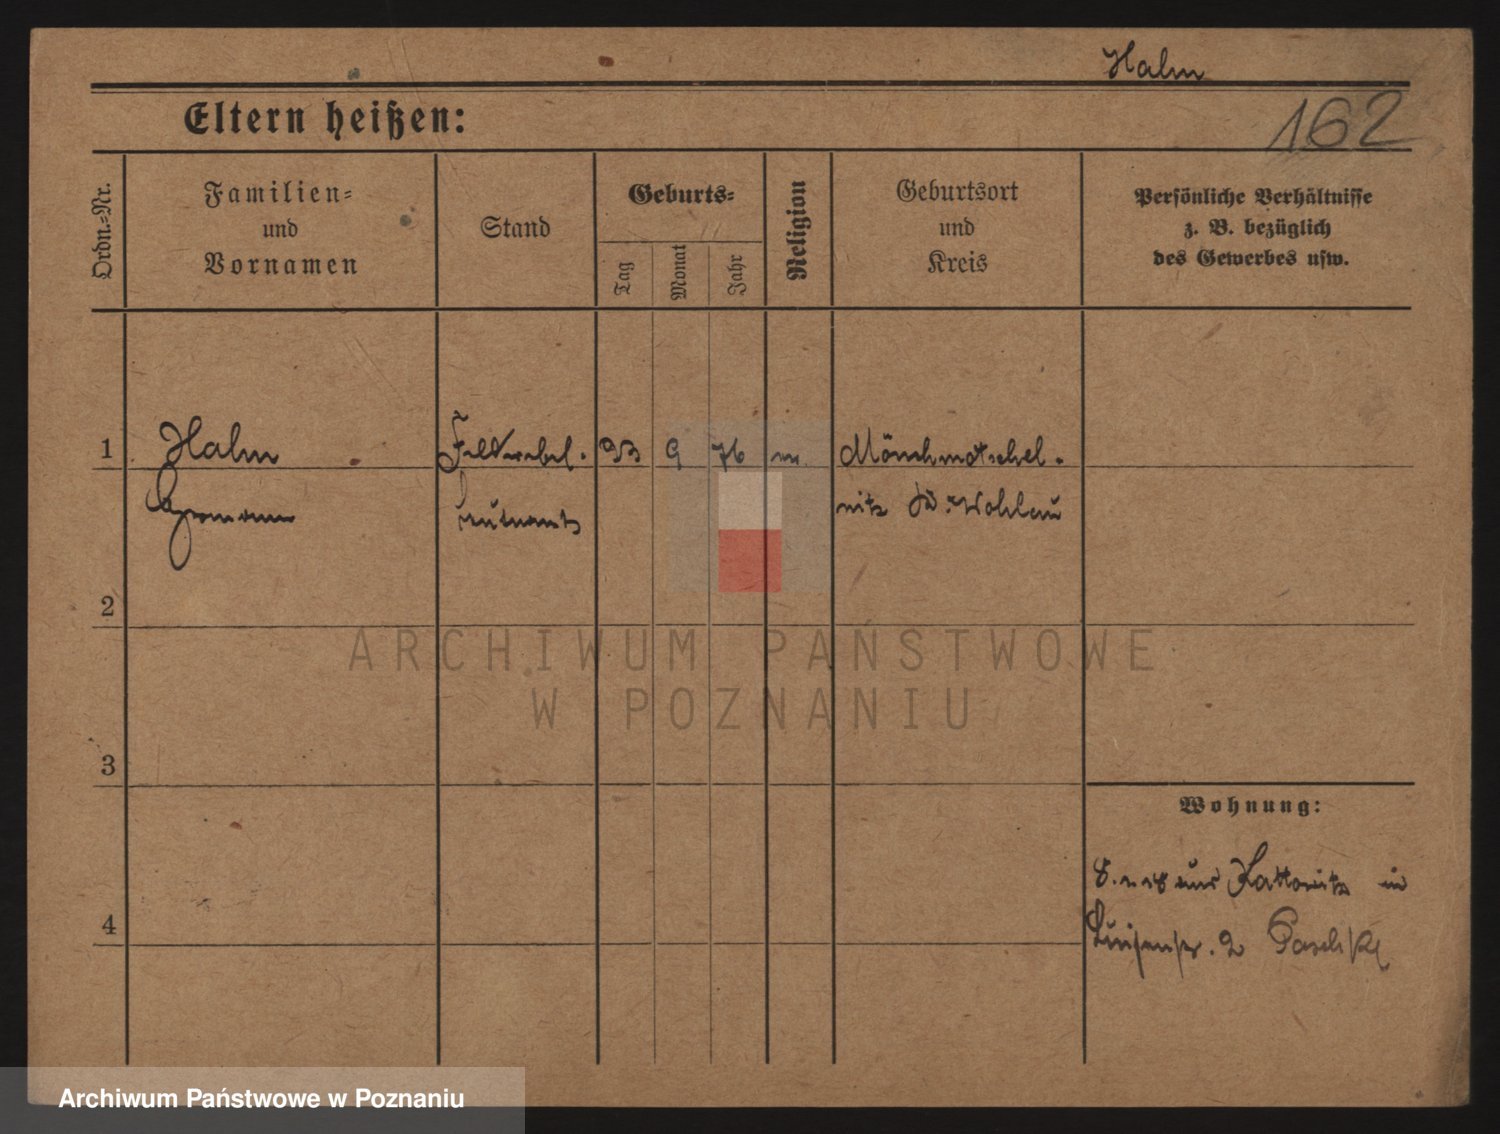 Halm
162
Eltern heißen:
Ordn.-Nr.
Familien-
und
Vornamen
Stand
Geburts-
Tag
Monat
Jahr
Religion
Geburtsort
und
Kreis
Persönliche Verhältnisse
z. B. bezüglich
des Gewerbes usw.
1
Halm
Hermann
Feldwebel-
Leutnant
23
9
76
Mönchmotschel-
nitz Kr. Wohlau
2
3
4
ARCHIWUM PAŃSTWOWE
W POZNANIU
Wohnung:
aus Kattowitz in
Luisenstr. 2
Archiwum Państwowe w Poznaniu